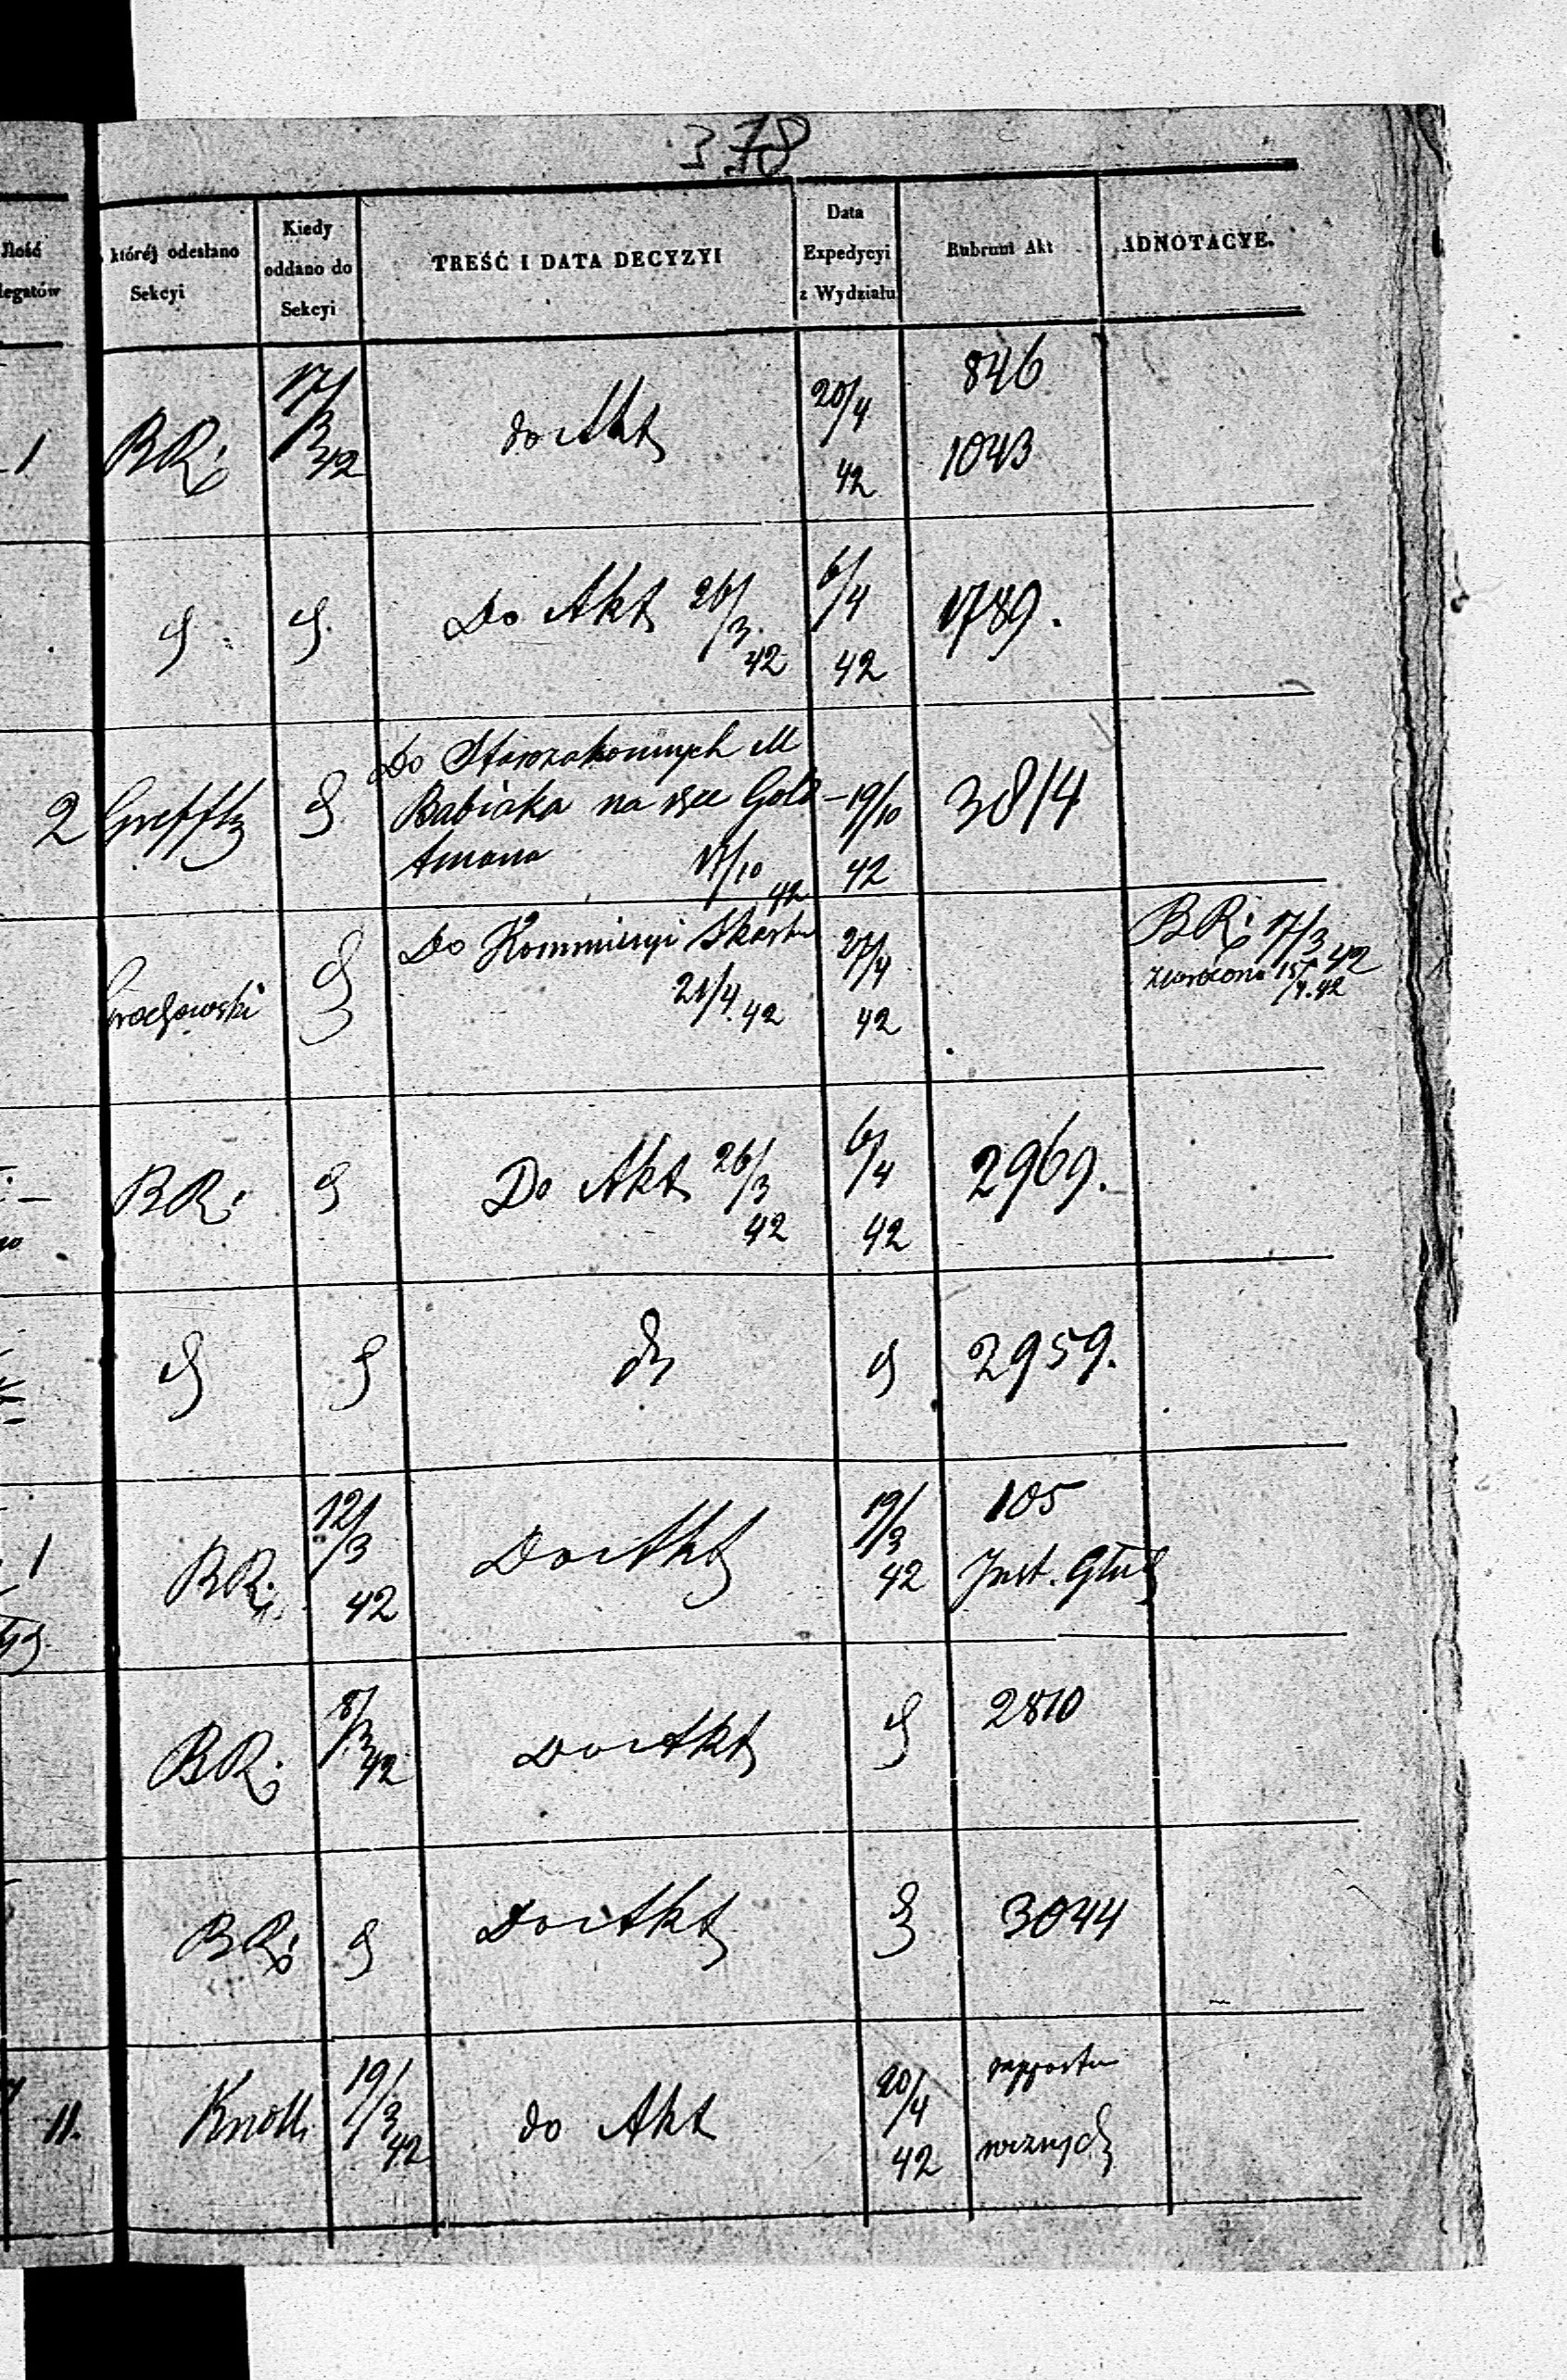 378
Ilość
legatów
której odesłano
Sekcyi
Kiedy
oddano do
Sekcyi
TREŚĆ I DATA DECYZYI
Data
Expedycyi
z Wydziału
Rubrum Akt
ADNOTACYE.
1
BR:
17/3 42
do Akt
20/4
42
846
1043
Do Akt 26/3 42
6/4
42
1789.
2
Do Starozakonnych M
Babiaka na ręce Gold
19/10
42
3814
Do Kommissyi Skarbu
21/4 42
27/4
42
BR: 17/3 42
zwrócono 15/4 42
BR:
Do Akt 26/3
42
6/4
42
2969.
2959.
1
BR:
12/3
42
Do Akt
19/3
42
105
Inst. Głuch
BR:
8/3 42
Do Akt
2810
BR:
Do Akt
3044
11.
Knoll
19/3 42
do Akt
20/4
42